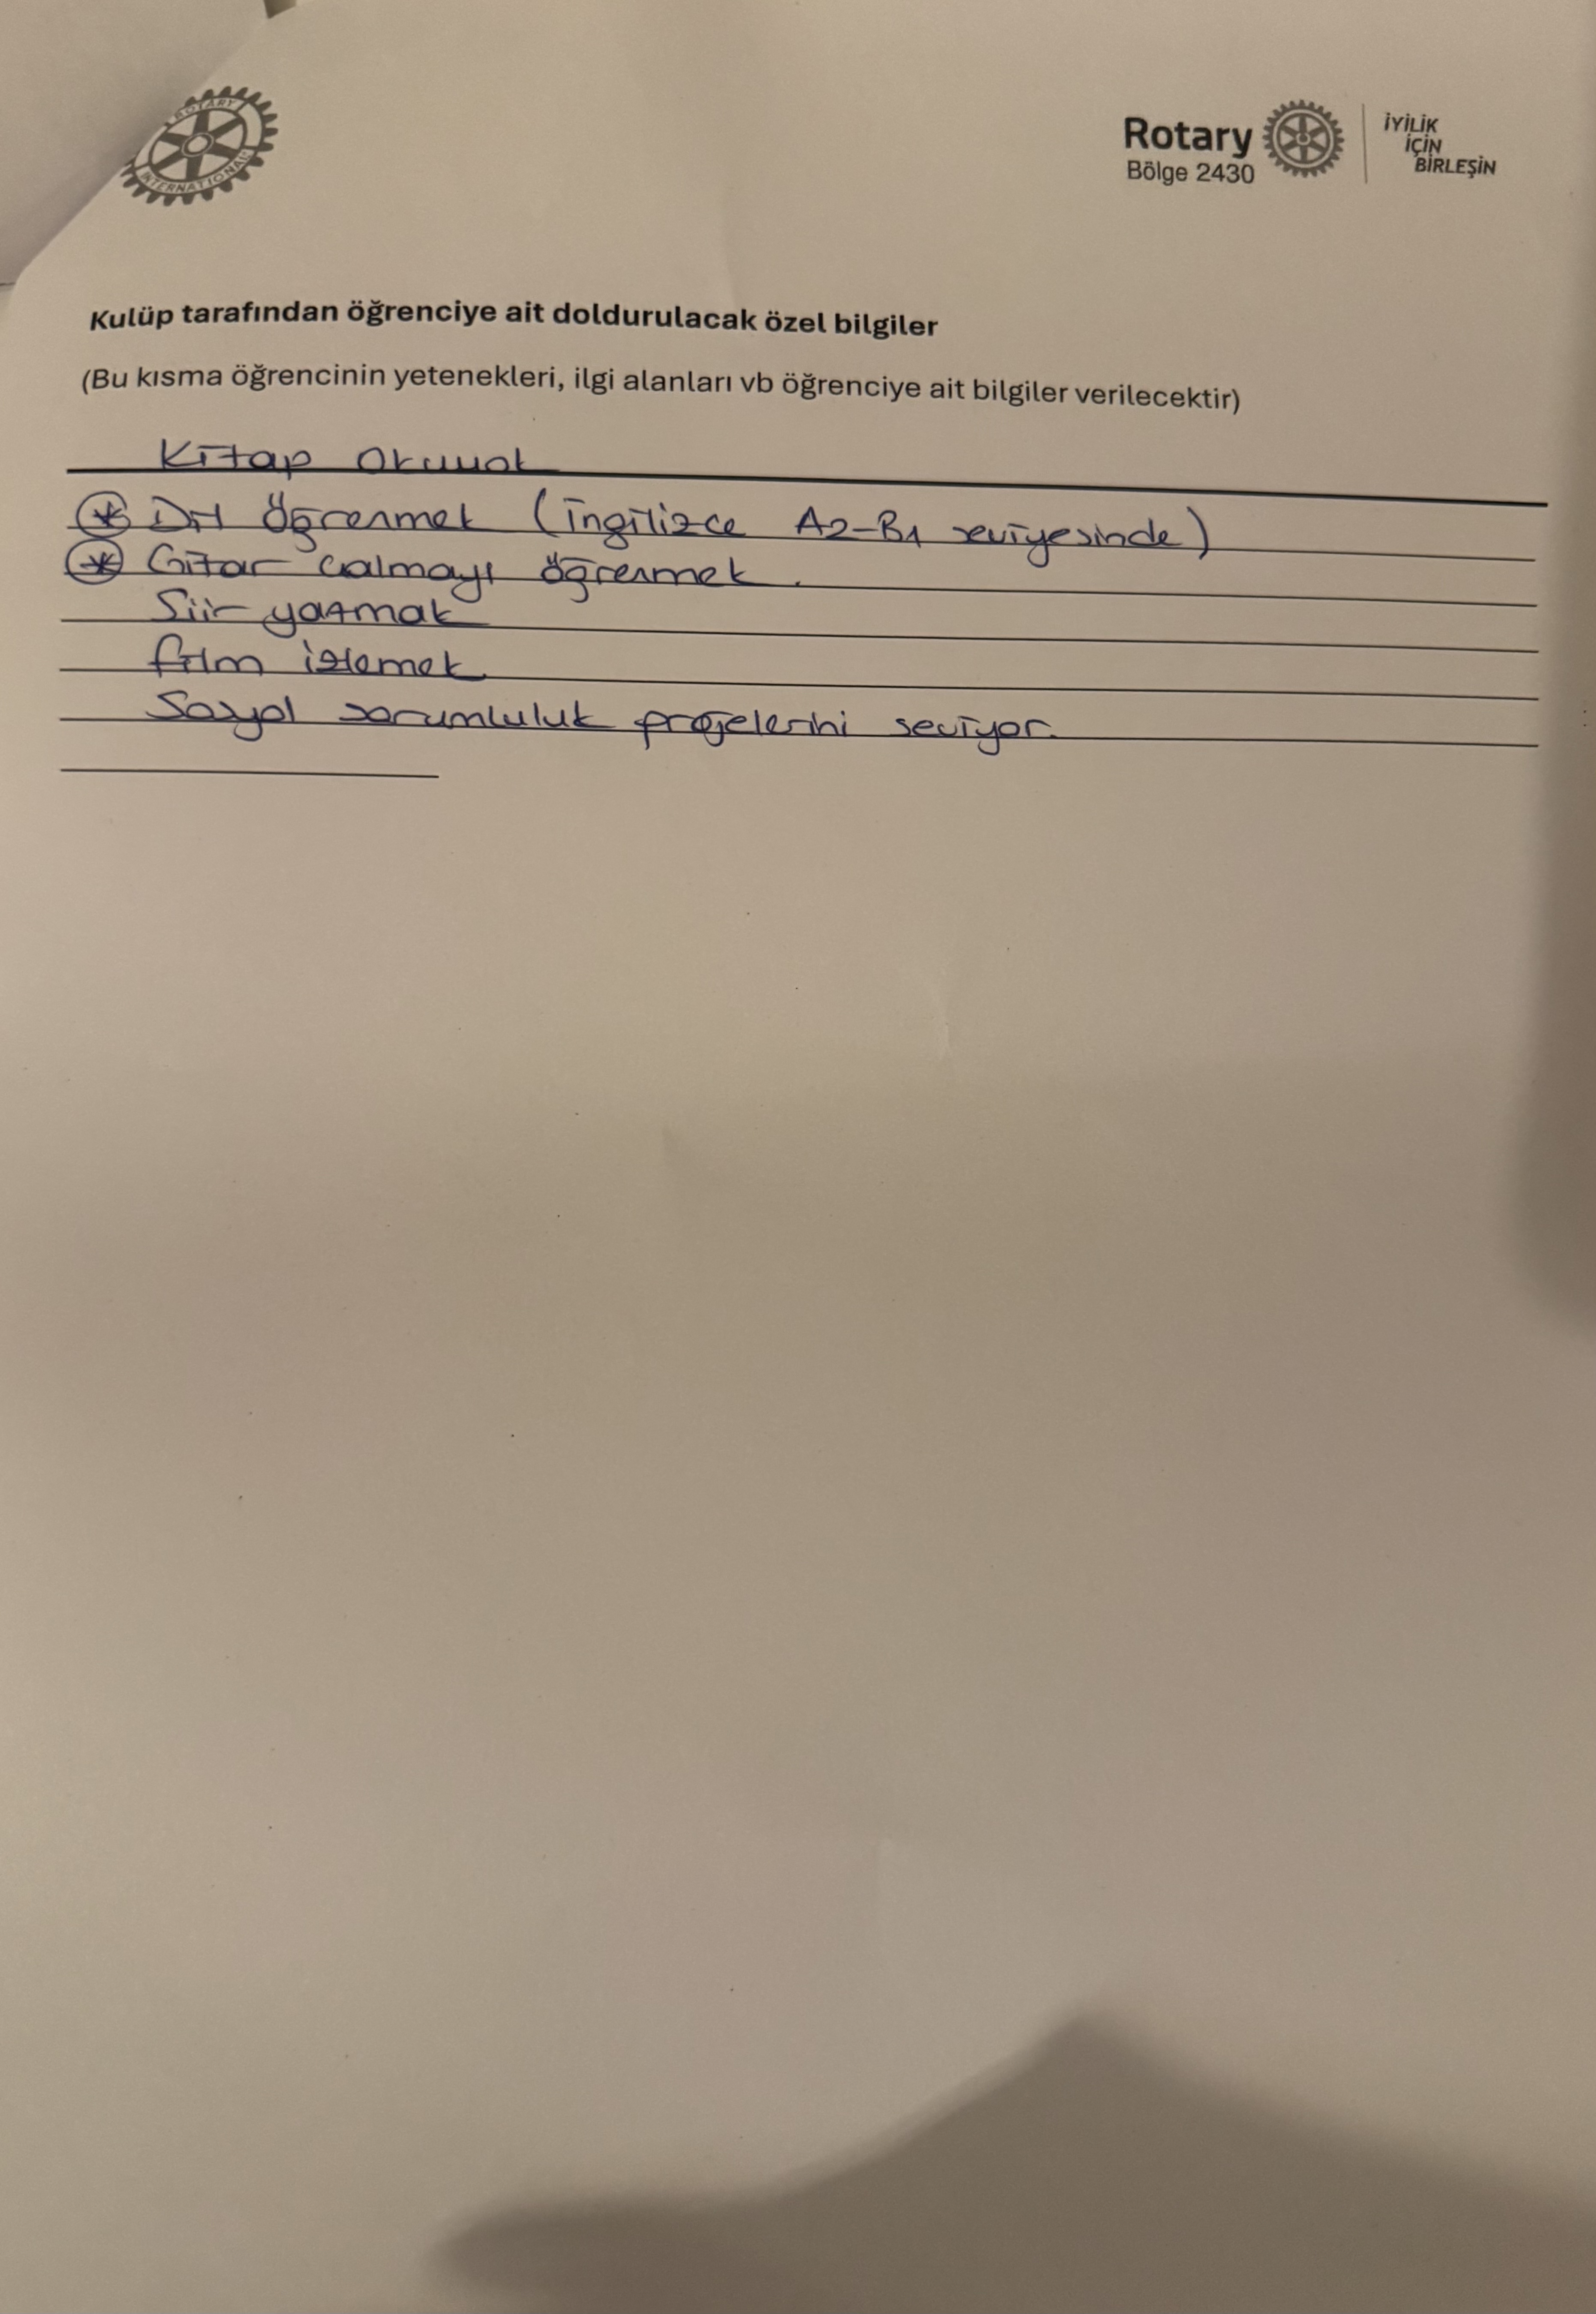 ROTARY
INTERNATIONAL
Rotary
Bölge 2430
İYİLİK
İÇİN
BİRLEŞİN
Kulüp tarafından öğrenciye ait doldurulacak özel bilgiler
(Bu kısma öğrencinin yetenekleri, ilgi alanları vb öğrenciye ait bilgiler verilecektir)
Kitap okumak
* Dil Öğrenmek (İngilizce A2-B1 seviyesinde)
* Gitar calmayı öğrenmek.
Siir yazmak
film izlemek
Sosyal sorumluluk projelerini seviyor.